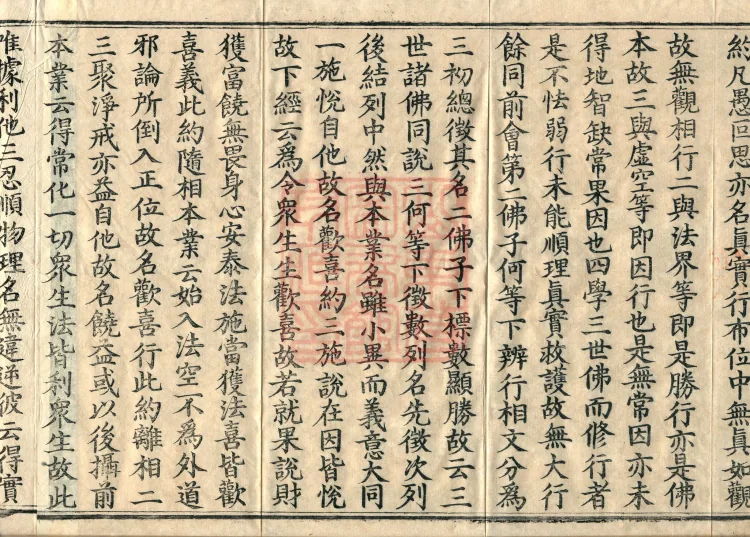 約凡愚回思亦名真實行布位中無真如觀
故無觀相行二與法界等即是勝行亦是佛
本故三與虛空等即因行也是無常因亦未
得地智缺常果因也四學三世佛而修行者
是不怯弱行未能順理真實救護故無大行
餘同前會第二佛子何等下辨行相文分為
三初總徵其名二佛子下標數顯勝故云三
世諸佛同說三何等下徵數列名先徵次列
後結列中然與本業名雖小異而義意大同
一施悅自他故名歡喜約三施說在因皆悅
故下經云為令眾生生歡喜故若就果說財
獲富饒無畏身心安泰法施當獲法喜皆歡
喜義此約隨相本業云始入法空不為外道
邪論所倒入正位故名歡喜行此約離相二
三聚淨戒亦益自他故名饒益或以後攝前
本業云得常化一切眾生法皆利眾生故此
唯據利他三忍順物理名無違逆彼云得實